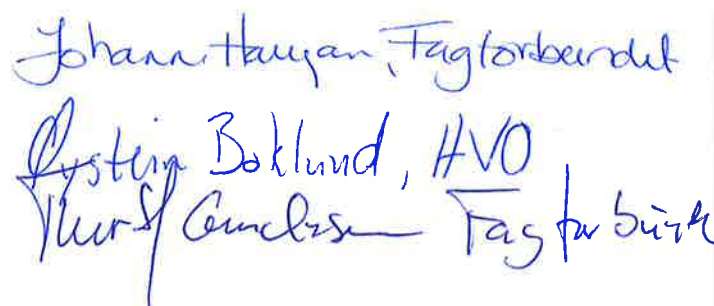 Johann Haugan, Fagforbundet
Øystein Boklund, HVO
Gundersen Fagforbund